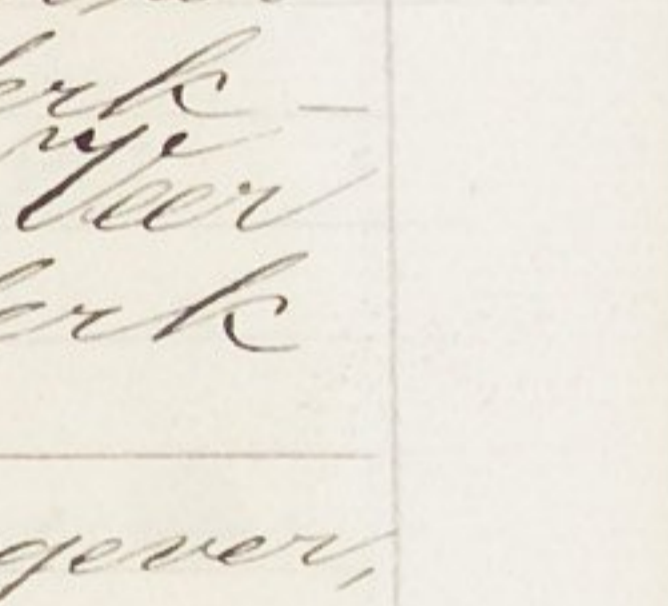 erk —
Veer
erk
gever,